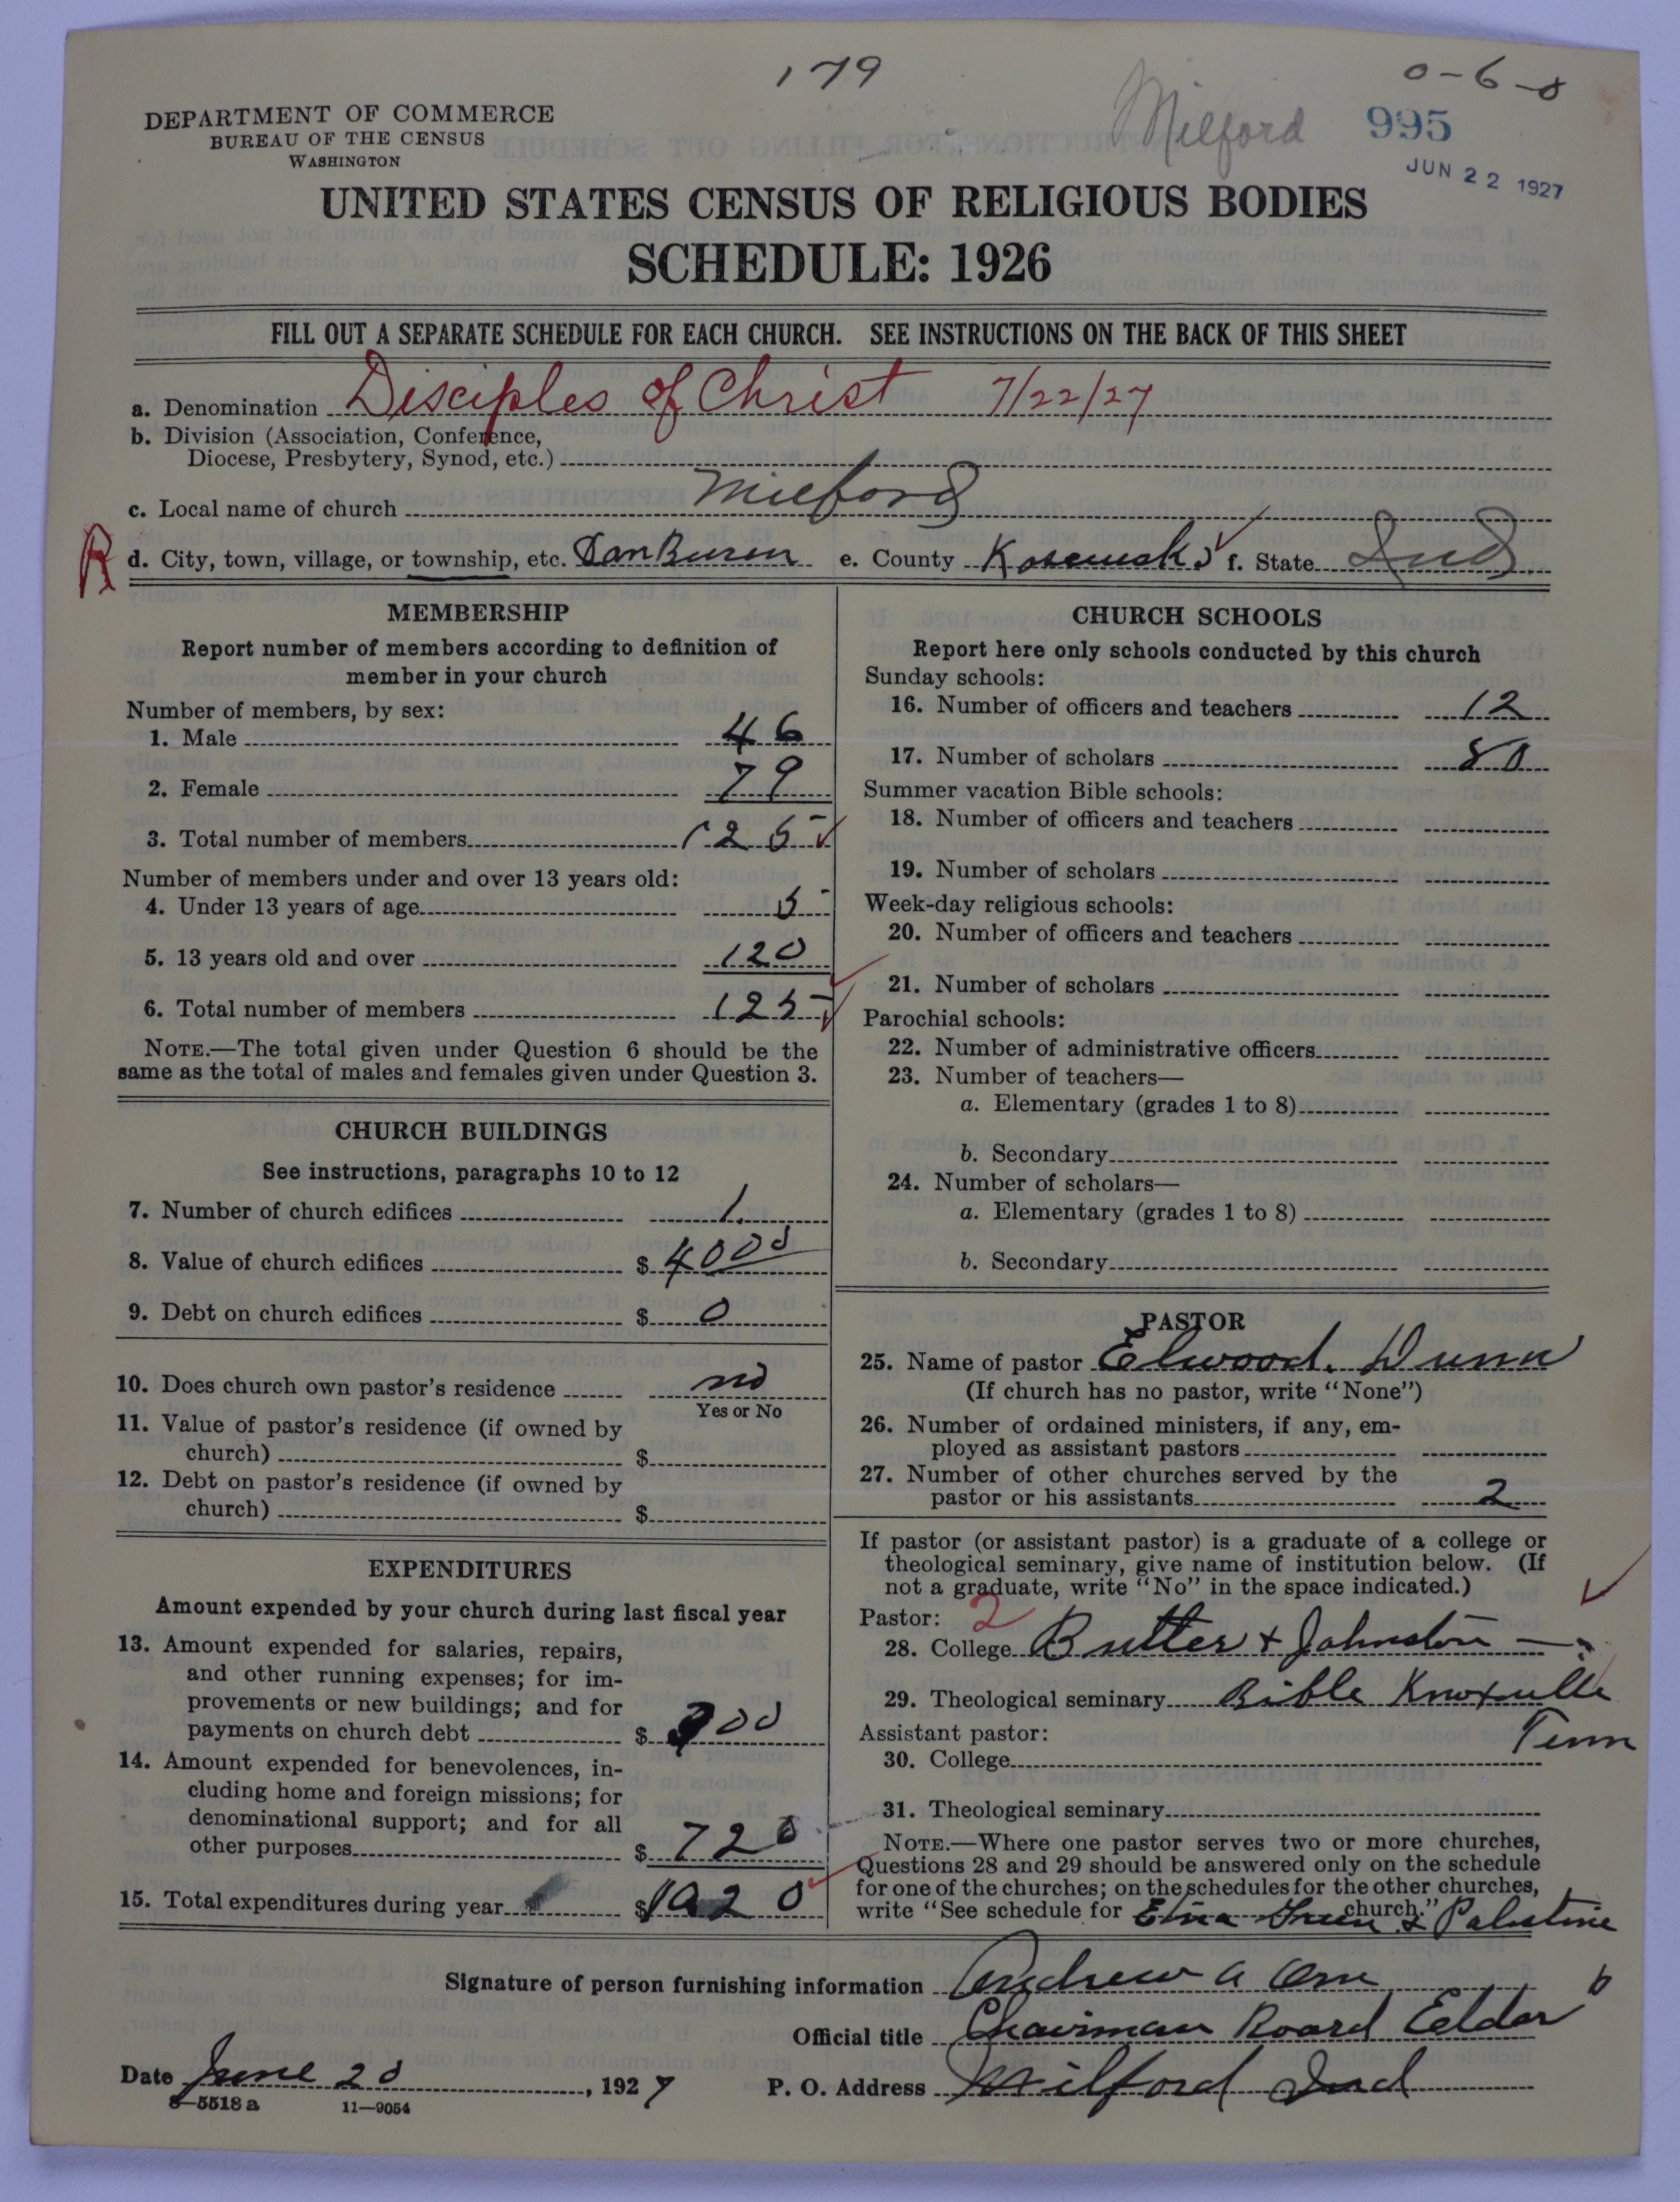 179
0-6-8
Milford
995
JUN 22 1927
DEPARTMENT OF COMMERCE
BUREAU OF THE CENSUS
WASHINGTON
UNITED STATES CENSUS OF RELIGIOUS BODIES
SCHEDULE: 1926
FILL OUT A SEPARATE SCHEDULE FOR EACH CHURCH. SEE INSTRUCTIONS ON THE BACK OF THIS SHEET
a. Denomination Disciples of Christ 7/22/27
b. Division (Association, Conference,
Diocese, Presbytery, Synod, etc.)
c. Local name of church Milford
R d. City, town, village, or township, etc. Van Buren e. County Kosciusko f. State Ind
MEMBERSHIP
Report number of members according to definition of
member in your church
Number of members, by sex:
1. Male 46
2. Female 79
3. Total number of members 125
Number of members under and over 13 years old:
4. Under 13 years of age 5
5. 13 years old and over 120
6. Total number of members 125
NOTE.—The total given under Question 6 should be the
same as the total of males and females given under Question 3.
CHURCH BUILDINGS
See instructions, paragraphs 10 to 12
7. Number of church edifices 1
8. Value of church edifices $ 4000
9. Debt on church edifices $ 0
10. Does church own pastor's residence no
Yes or No
11. Value of pastor's residence (if owned by
church) $
12. Debt on pastor's residence (if owned by
church) $
EXPENDITURES
Amount expended by your church during last fiscal year
13. Amount expended for salaries, repairs,
and other running expenses; for im-
provements or new buildings; and for
payments on church debt $
14. Amount expended for benevolences, in-
cluding home and foreign missions; for
denominational support; and for all
other purposes $ 720
15. Total expenditures during year $
CHURCH SCHOOLS
Report here only schools conducted by this church
Sunday schools:
16. Number of officers and teachers 12
17. Number of scholars 80
Summer vacation Bible schools:
18. Number of officers and teachers
19. Number of scholars
Week-day religious schools:
20. Number of officers and teachers
21. Number of scholars
Parochial schools:
22. Number of administrative officers
23. Number of teachers—
a. Elementary (grades 1 to 8)
b. Secondary
24. Number of scholars—
a. Elementary (grades 1 to 8)
b. Secondary
PASTOR
25. Name of pastor Elwood. Dunn
(If church has no pastor, write "None")
26. Number of ordained ministers, if any, em-
ployed as assistant pastors
27. Number of other churches served by the
pastor or his assistants 2
If pastor (or assistant pastor) is a graduate of a college or
theological seminary, give name of institution below. (If
not a graduate, write "No" in the space indicated.)
Pastor: 2
28. College Butler + Johnston
29. Theological seminary Bible Knoxville
Tenn
Assistant pastor:
30. College
31. Theological seminary
NOTE.—Where one pastor serves two or more churches,
Questions 28 and 29 should be answered only on the schedule
for one of the churches; on the schedules for the other churches,
write "See schedule for Etna Green & Palestine church."
Signature of person furnishing information Andrew A Orn
Official title Chairman Board Elders
Date June 20, 1927 P. O. Address Milford Ind
8—5518 a 11—9054